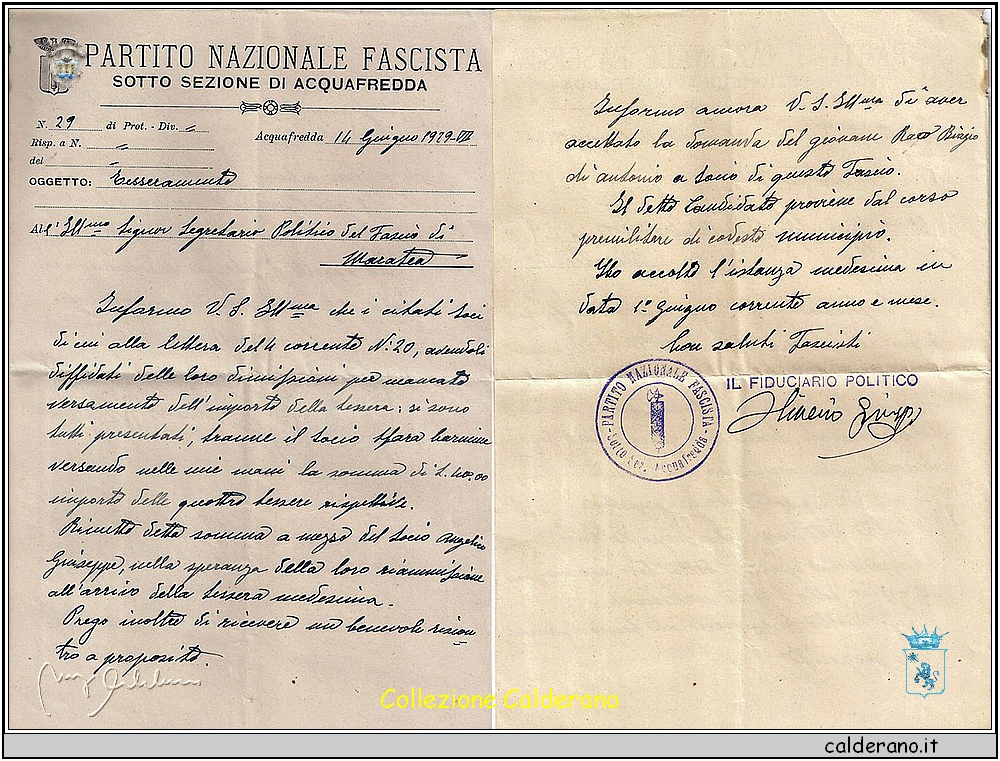 PARTITO NAZIONALE FASCISTA
SOTTO SEZIONE DI ACQUAFREDDA
N. 29 di Prot. - Div. "
Acquafredda 14 Giugno 1929-VII
Risp. a N. "
del "
OGGETTO: Tesseramento
All' Ill.mo Signor Segretario Politico del Fascio di
Maratea
Informo V. S. Ill.ma che i citati soci
di cui alla lettera del 4 corrente N. 20, avendoli
diffidati delle loro dimissioni per mancato
versamento dell'importo della tessera: si sono
tutti presentati, tranne il socio Sfara Carmine
versando nelle mie mani la somma di L. 40.00
importo delle quattro tessere rispettive.
Rimetto detta somma a mezzo del socio Angelico
Giuseppe, nella speranza della loro riammissione
all'arrivo della tessera medesima.
Prego inoltre di ricevere un benevole riscon
tro a proposito.
Informo ancora V. S. Ill.ma di aver
accettato la domanda del giovane Biagio
di Antonio a Socio di questo Fascio.
Il detto Candidato proviene dal corso
premilitere di codesto municipio.
Ho accolto l'istanza medesima in
data 1° Giugno corrente anno e mese.
Con saluti Fascisti
IL FIDUCIARIO POLITICO
PARTITO NAZIONALE FASCISTA
Sotto Sez. Acquafredda
Collezione Calderano
calderano.it